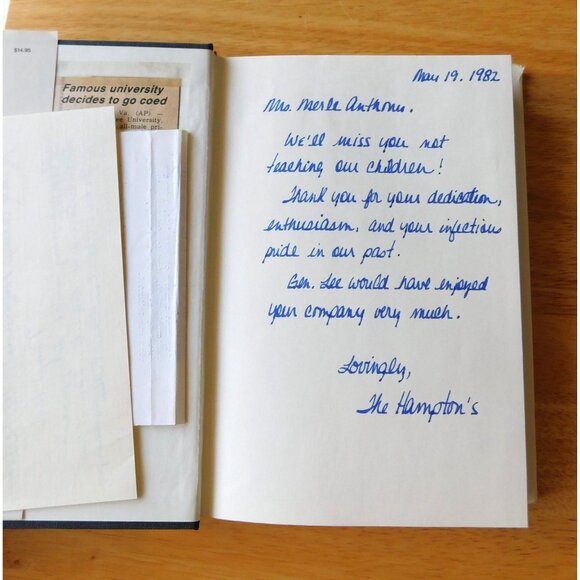 $14.95
Famous university
decides to go coed
Va. (AP) —
ee University,
all-male pri-
May 19, 1982
Ms. Merle Anthony,
We'll miss you not
teaching our children!
Thank you for your dedication,
enthusiasm, and your infectious
pride in our past.
Gen. Lee would have enjoyed
your company very much.
Lovingly,
The Hampton's